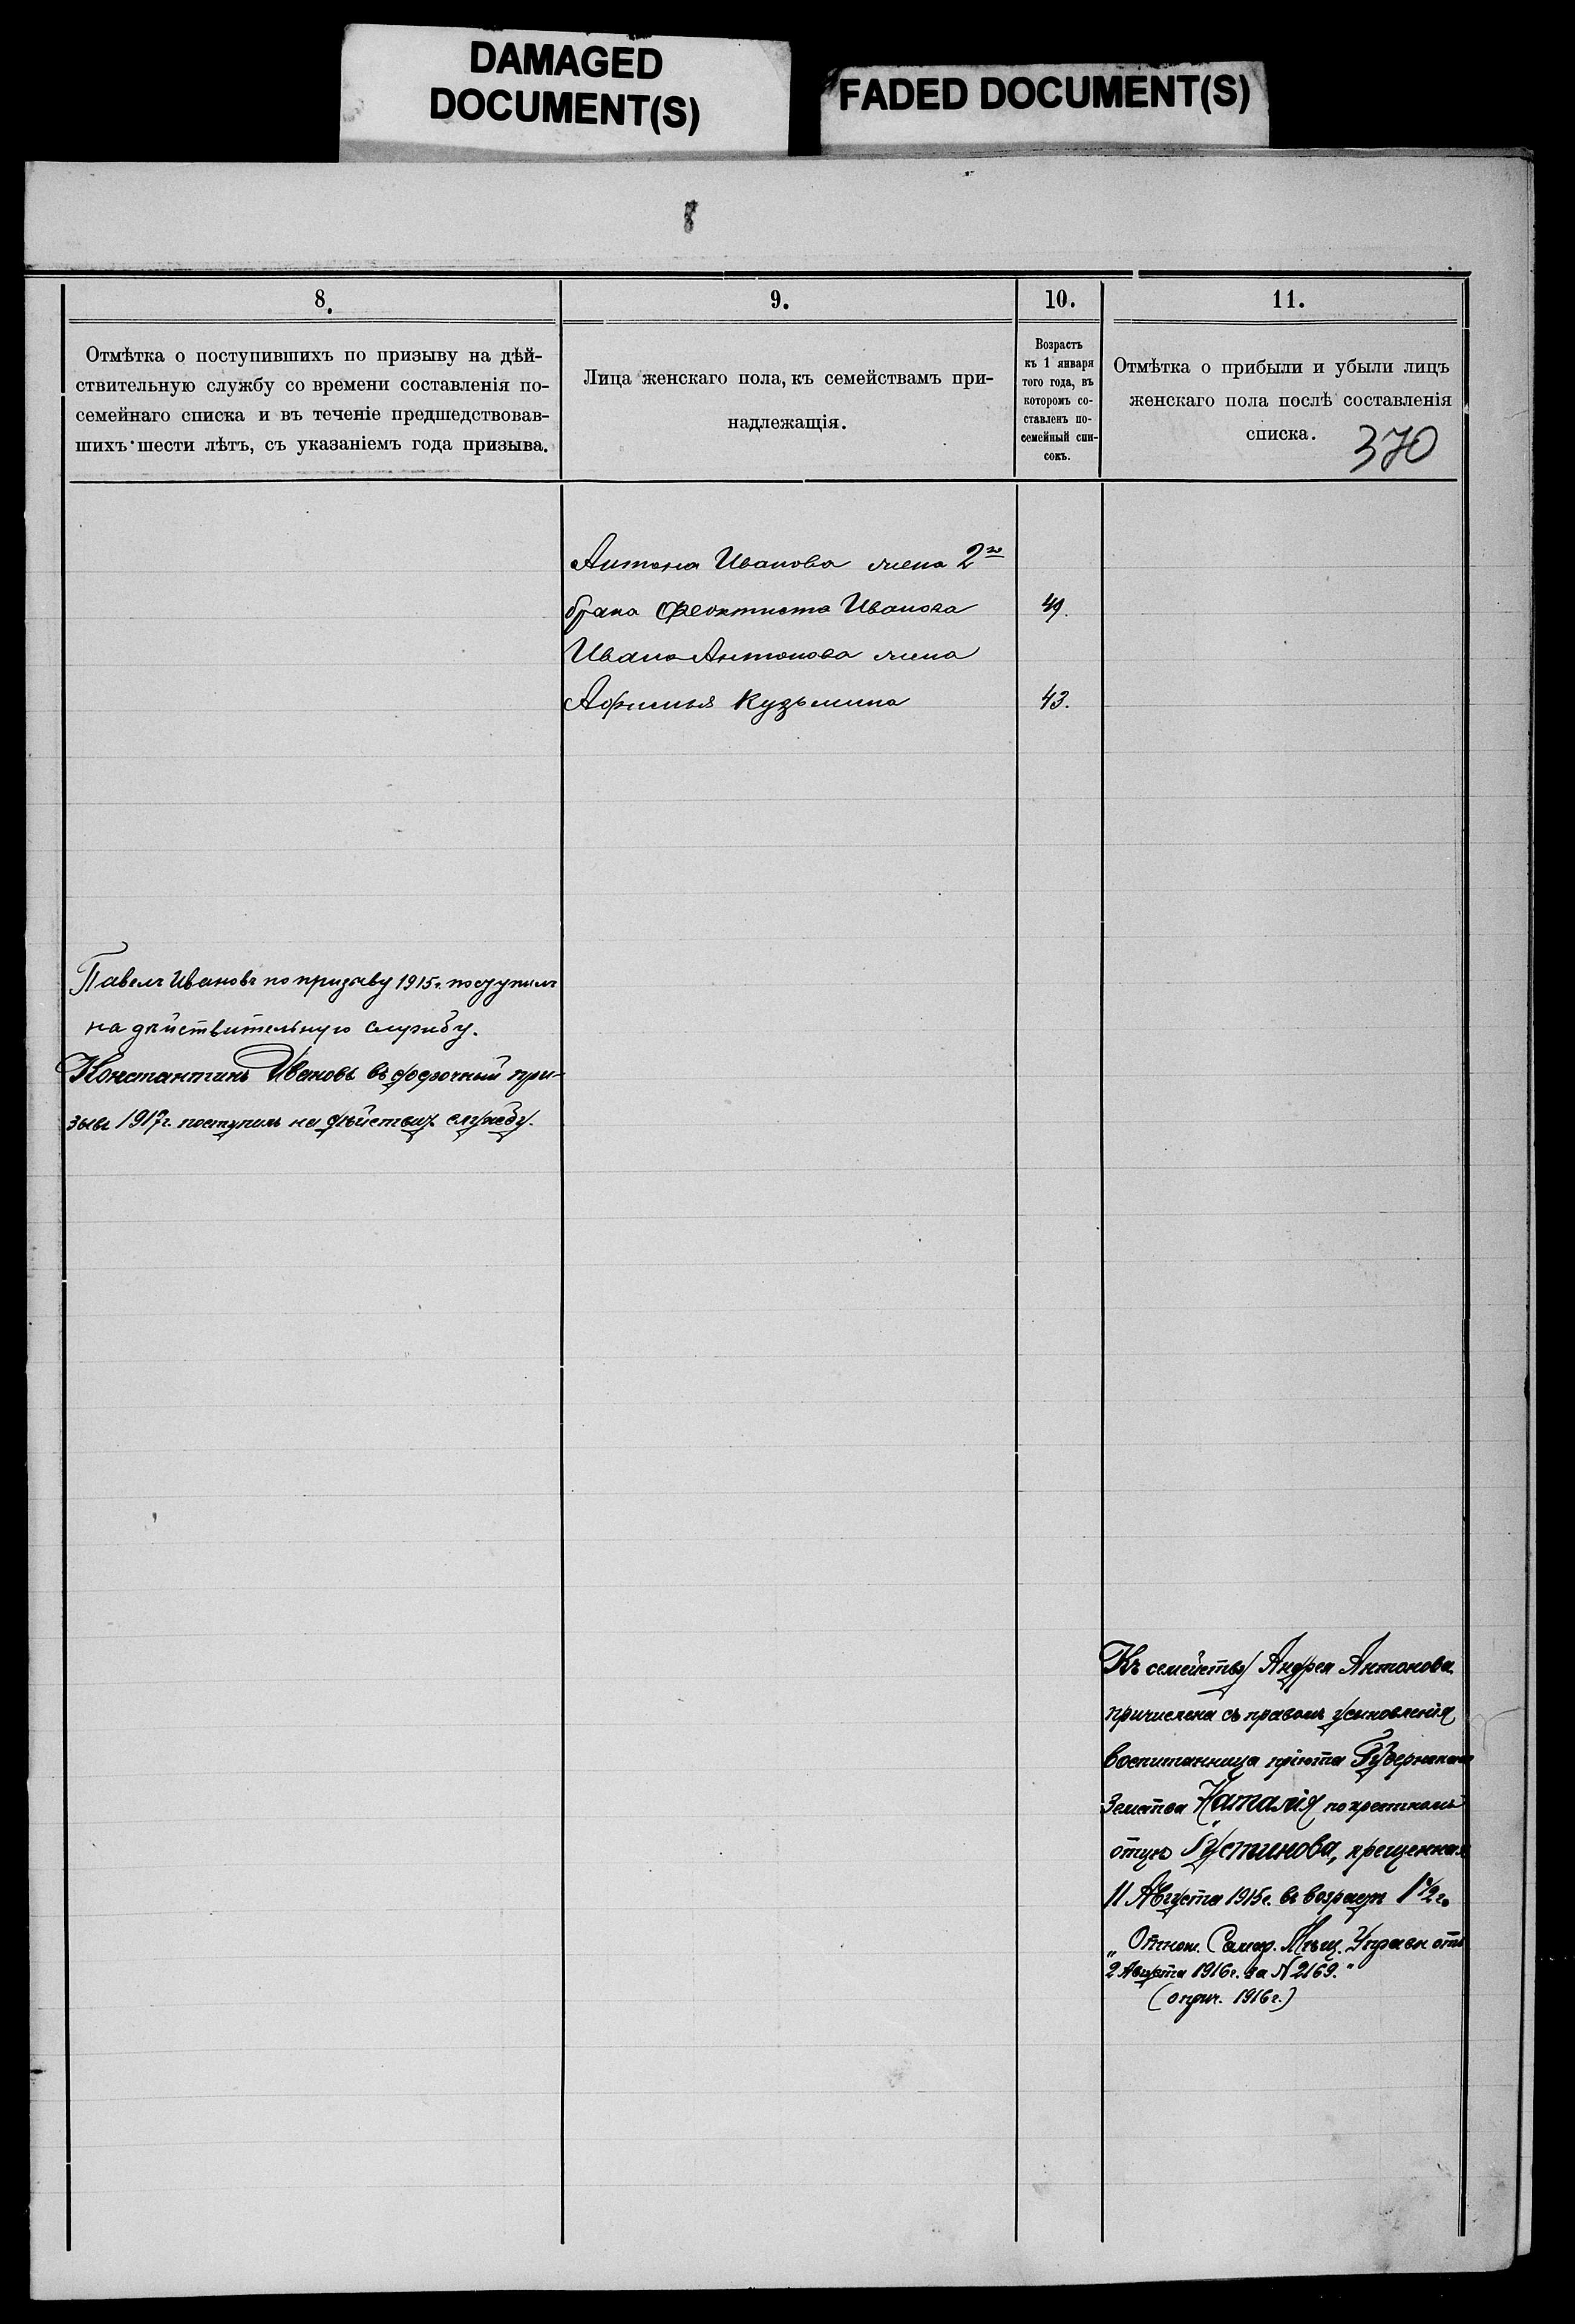 DAMAGED
DOCUMENT(S)
FADED DOCUMENT(S)
8.
9.
10.
11.
Отмѣтка о поступившихъ по призыву на дѣй-
ствительную службу со времени составленія по-
семейнаго списка и въ теченіе предшедствовав-
шихъ шести лѣтъ, съ указаніемъ года призыва.
Лица женскаго пола, къ семействамъ при-
надлежащія.
Возрастъ
къ 1 января
того года, въ
которомъ со-
ставленъ по-
семейный спи-
сокъ.
Отмѣтка о прибыли и убыли лицъ
женскаго пола послѣ составленія
списка.
370
Антона Иванова жена 2го
брака Феоктиста Иванова 49.
Ивана Антонова жена
Афимья Кузьмина 43.
Павелъ Ивановъ по призыву 1915г. поступилъ
на дѣйствительную службу.
Константинъ Ивановъ въ досрочный при-
зывъ 1917г. поступилъ на дѣйствит. службу.
Къ семейству Андрея Антонова
причислена съ правомъ усыновленія
воспитанница пріюта Губернскаго
Земства Наталія по крестному
отцу Устинова, крещенная
11 Августа 1915г. въ возрастѣ 1 1/2 г.
„Отнош. Самар. Мѣщ. Управы отъ
2 Августа 1916г. за N 2169."
(о прич. 1916г.)